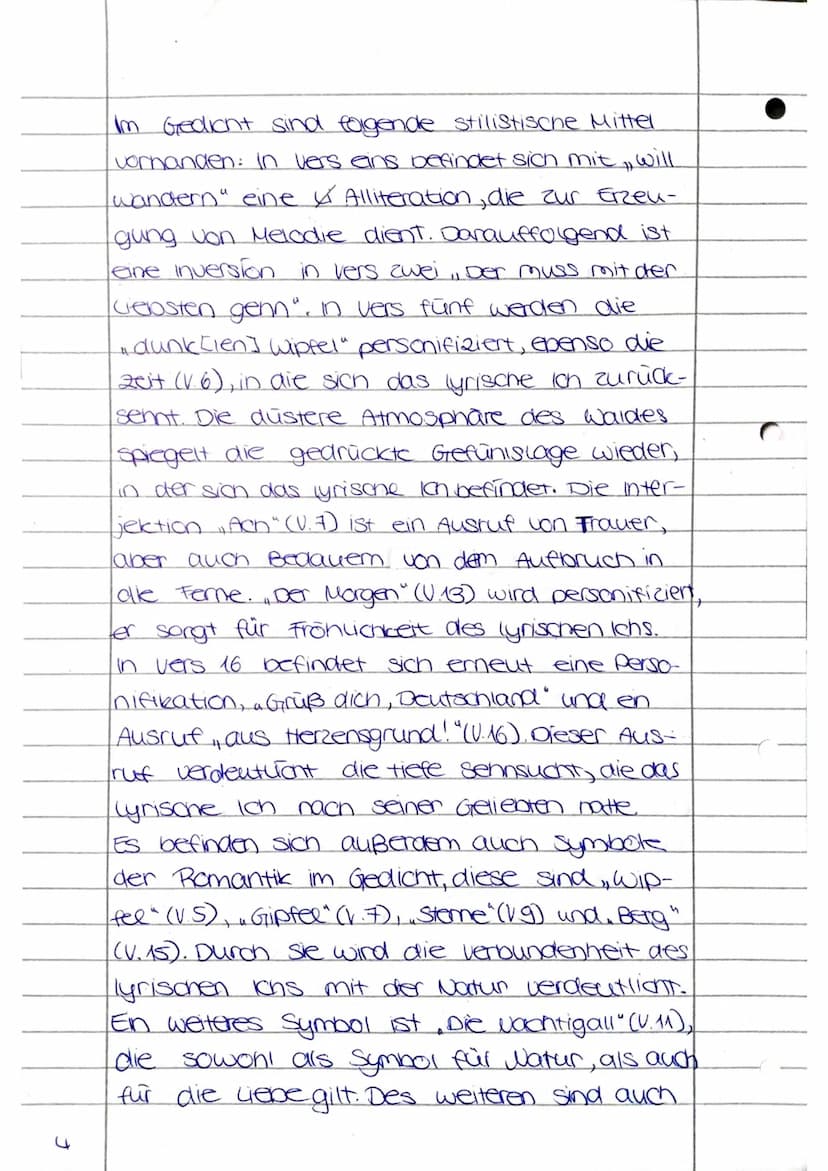 Im Gedicht sind folgende stilistische Mittel
vorhanden: In Vers eins befindet sich mit „will
wandern“ eine Alliteration, die zur Erzeu-
gung von Melodie dient. Darauffolgend ist
eine Inversion in Vers zwei „Der muss mit der
Liebsten gehn“. In Vers fünf werden die
„dunk[len] Wipfel“ personifiziert, ebenso die
Zeit (V. 6), in die sich das lyrische Ich zurück-
sehnt. Die düstere Atmosphäre des Waldes
spiegelt die gedrückte Gefühlslage wieder,
in der sich das lyrische Ich befindet. Die Inter-
jektion „Ach“ (V. 7) ist ein Ausruf von Trauer,
aber auch Bedauern von dem Aufbruch in
die Ferne. „Der Morgen“ (V. 13) wird personifiziert,
er sorgt für Fröhlichkeit des lyrischen Ichs.
In Vers 16 befindet sich erneut eine Perso-
nifikation, „Grüß dich, Deutschland“ und ein
Ausruf „aus Herzensgrund!“ (V. 16). Dieser Aus-
ruf verdeutlicht die tiefe Sehnsucht, die das
lyrische Ich nach seiner Geliebten hatte.
Es befinden sich außerdem auch Symbole
der Romantik im Gedicht, diese sind „Wip-
fel“ (V. 5), „Gipfel“ (V. 7), „Sterne“ (V. 9) und „Berg“
(V. 15). Durch sie wird die Verbundenheit des
lyrischen Ichs mit der Natur verdeutlicht.
Ein weiteres Symbol ist „Die Nachtigall“ (V. 11),
die sowohl als Symbol für Natur, als auch
für die Liebe gilt. Des weiteren sind auch
4